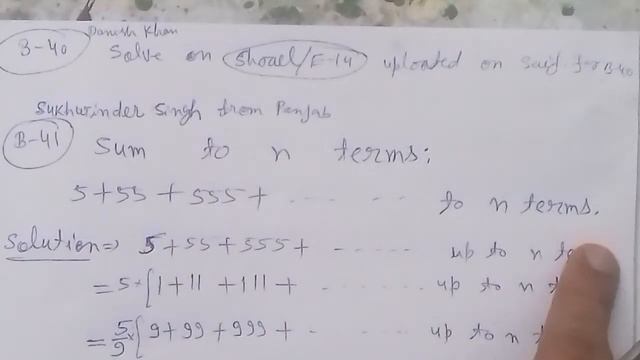 Danish Khan
B-40 Solve on Shoael/E-14 uploaded on for B-40
Sukhwinder Singh from Panjab
B-41 Sum to n terms:
5+55+555+ ...... to n terms.
Solution=> 5+55+555+ ...... up to n
=5×[1+11+111+ ...... up to n
=5/9×[9+99+999+ ...... up to n